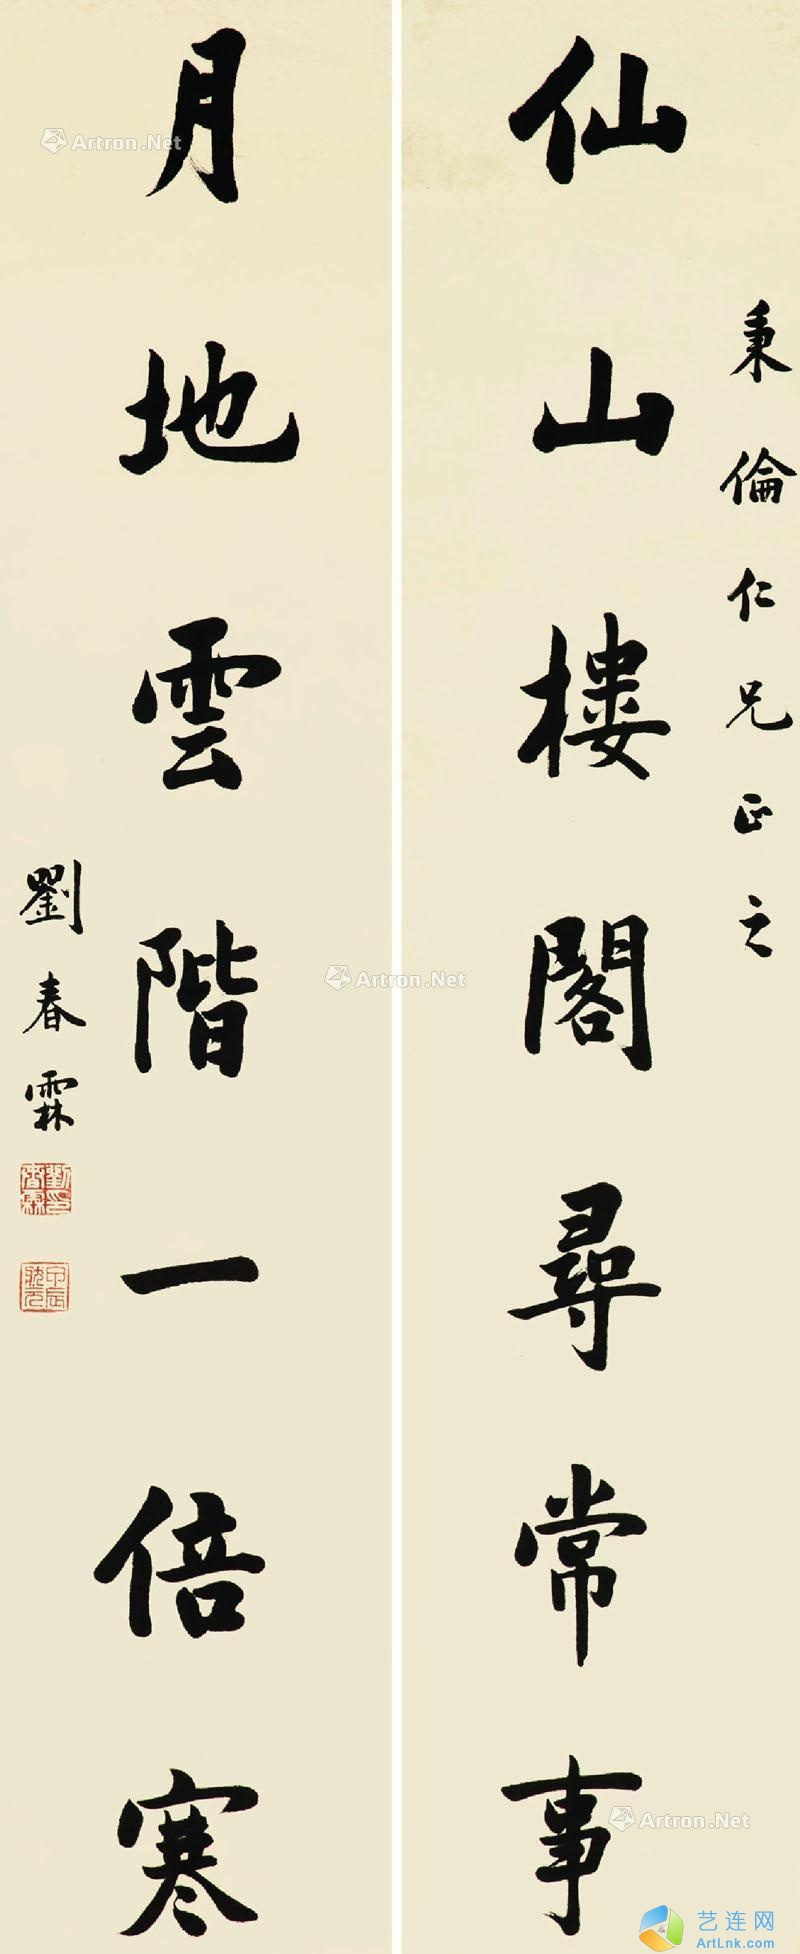 秉倫仁兄正之
仙山樓閣尋常事
月地雲階一倍寒
劉春霖
劉春霖印
甲辰狀元
Artron.Net
Artron.Net
Artron.Net
艺连网
ArtLnk.com